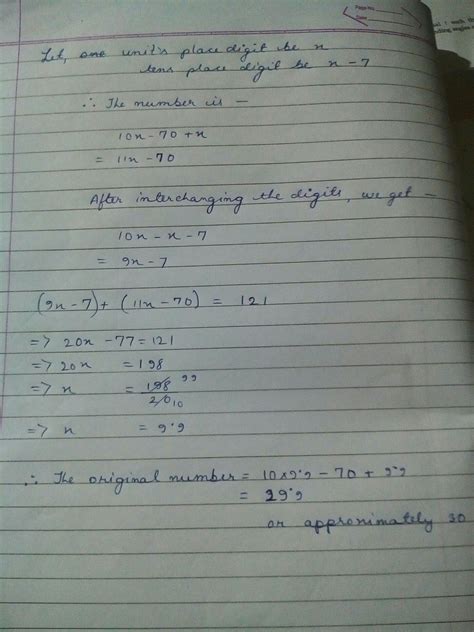 Let, one unit's place digit be x
tens place digit be x - 7
∴ The number is —
10x - 70 + x
= 11x - 70
After interchanging the digits, we get —
10x - x - 7
= 9x - 7
(9x - 7) + (11x - 70) = 121
=> 20x - 77 = 121
=> 20x = 198
=> x = 198 99
20 10
=> x = 9.9
∴ The original number = 10 x 9.9 - 70 + 9.9
= 29.9
or approximately 30